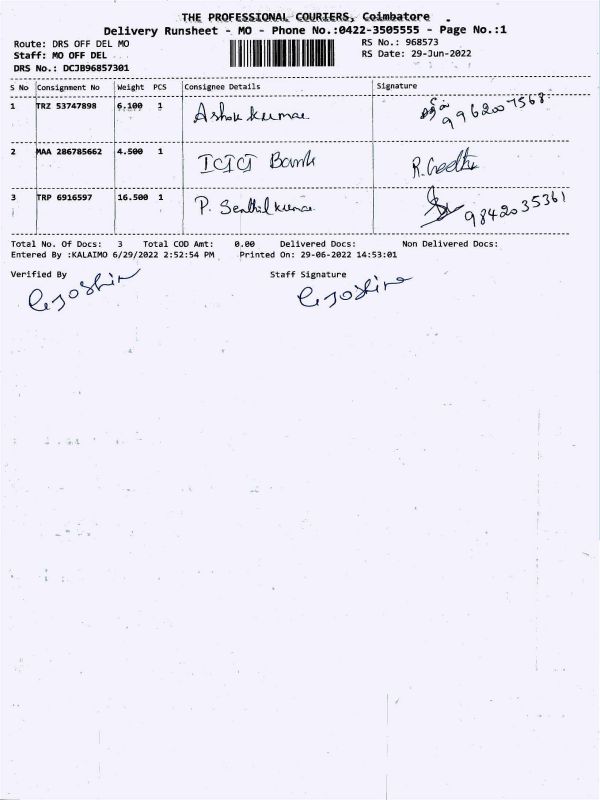 THE PROFESSIONAL COURIERS, Coimbatore
Delivery Runsheet - MO - Phone No.:0422-3505555 - Page No.:1
Route: DRS OFF DEL MO RS No.: 968573
Staff: MO OFF DEL RS Date: 29-Jun-2022
DRS No.: DCJB96857301
S No Consignment No Weight PCS Consignee Details Signature
1 TRZ 53747898 6.100 1 Ashok kumar 9962007568
2 MAA 286785662 4.500 1 ICICI Bank R.Geetha
3 TRP 6916597 16.500 1 P. Senthil kumar 9842035361
Total No. Of Docs: 3 Total COD Amt: 0.00 Delivered Docs: Non Delivered Docs:
Entered By :KALAIMO 6/29/2022 2:52:54 PM Printed On: 29-06-2022 14:53:01
Verified By Staff Signature